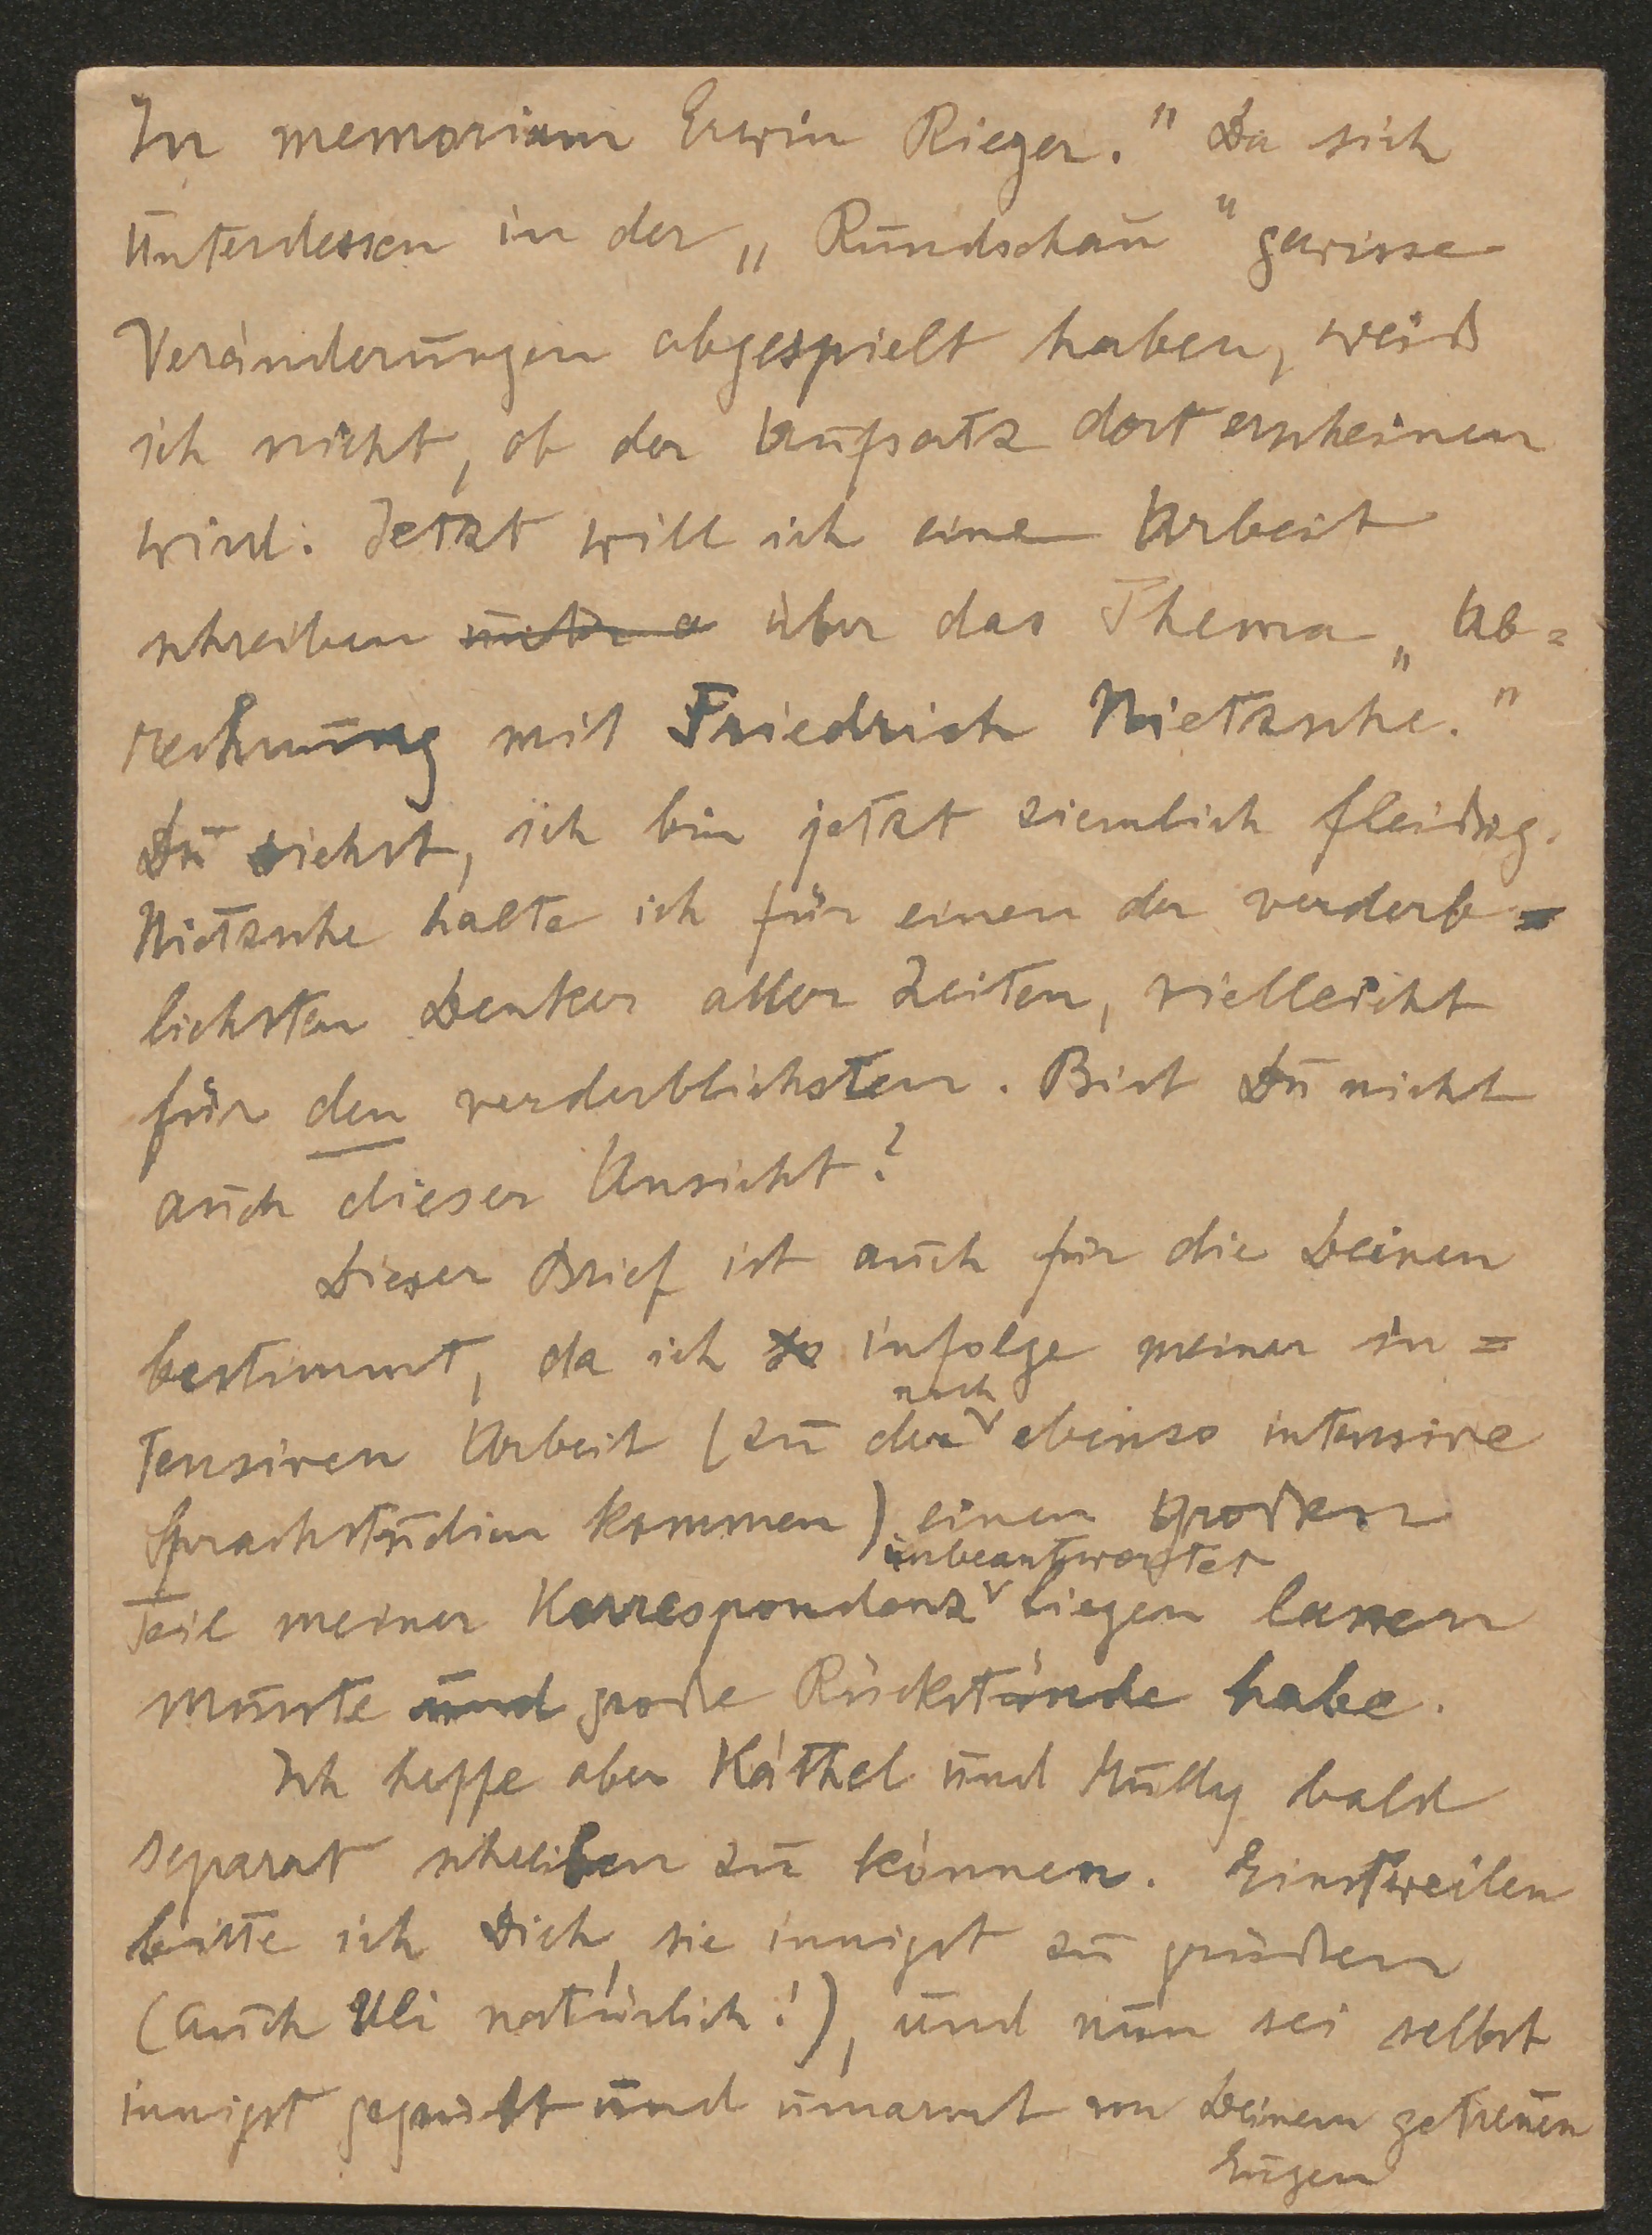 In memoriam Erwin Rieger." Da sich
unterdessen in der „Rundschau" gewisse
Veränderungen abgespielt haben, weiß
ich nicht, ob der Aufsatz dort erscheinen
wird. Jetzt will ich eine Arbeit
schreiben über das Thema „Ab=
rechnung mit Friedrich Nietzsche."
Du siehst, ich bin jetzt ziemlich fleißig.
Nietzsche halte ich für einen der verderb=
lichsten Denker aller Zeiten, vielleicht
für den verderblichsten. Bist Du nicht
auch dieser Ansicht?
Dieser Brief ist auch für die Deinen
bestimmt, da ich infolge meiner in=
tensiven Arbeit (zu der noch ebenso intensive
Sprachstudien kommen) einen großen
Teil meiner Korrespondenz unbeantwortet liegen lassen
musste und große Rückstände habe.
Ich hoffe aber Käthel und Mully bald
separat schreiben zu können. Einstweilen
bitte ich Dich, sie innigst zu grüßen
(auch Uli natürlich!), und nun sei selbst
innigst gegrüßt und umarmt von Deinem getreuen
Eugen